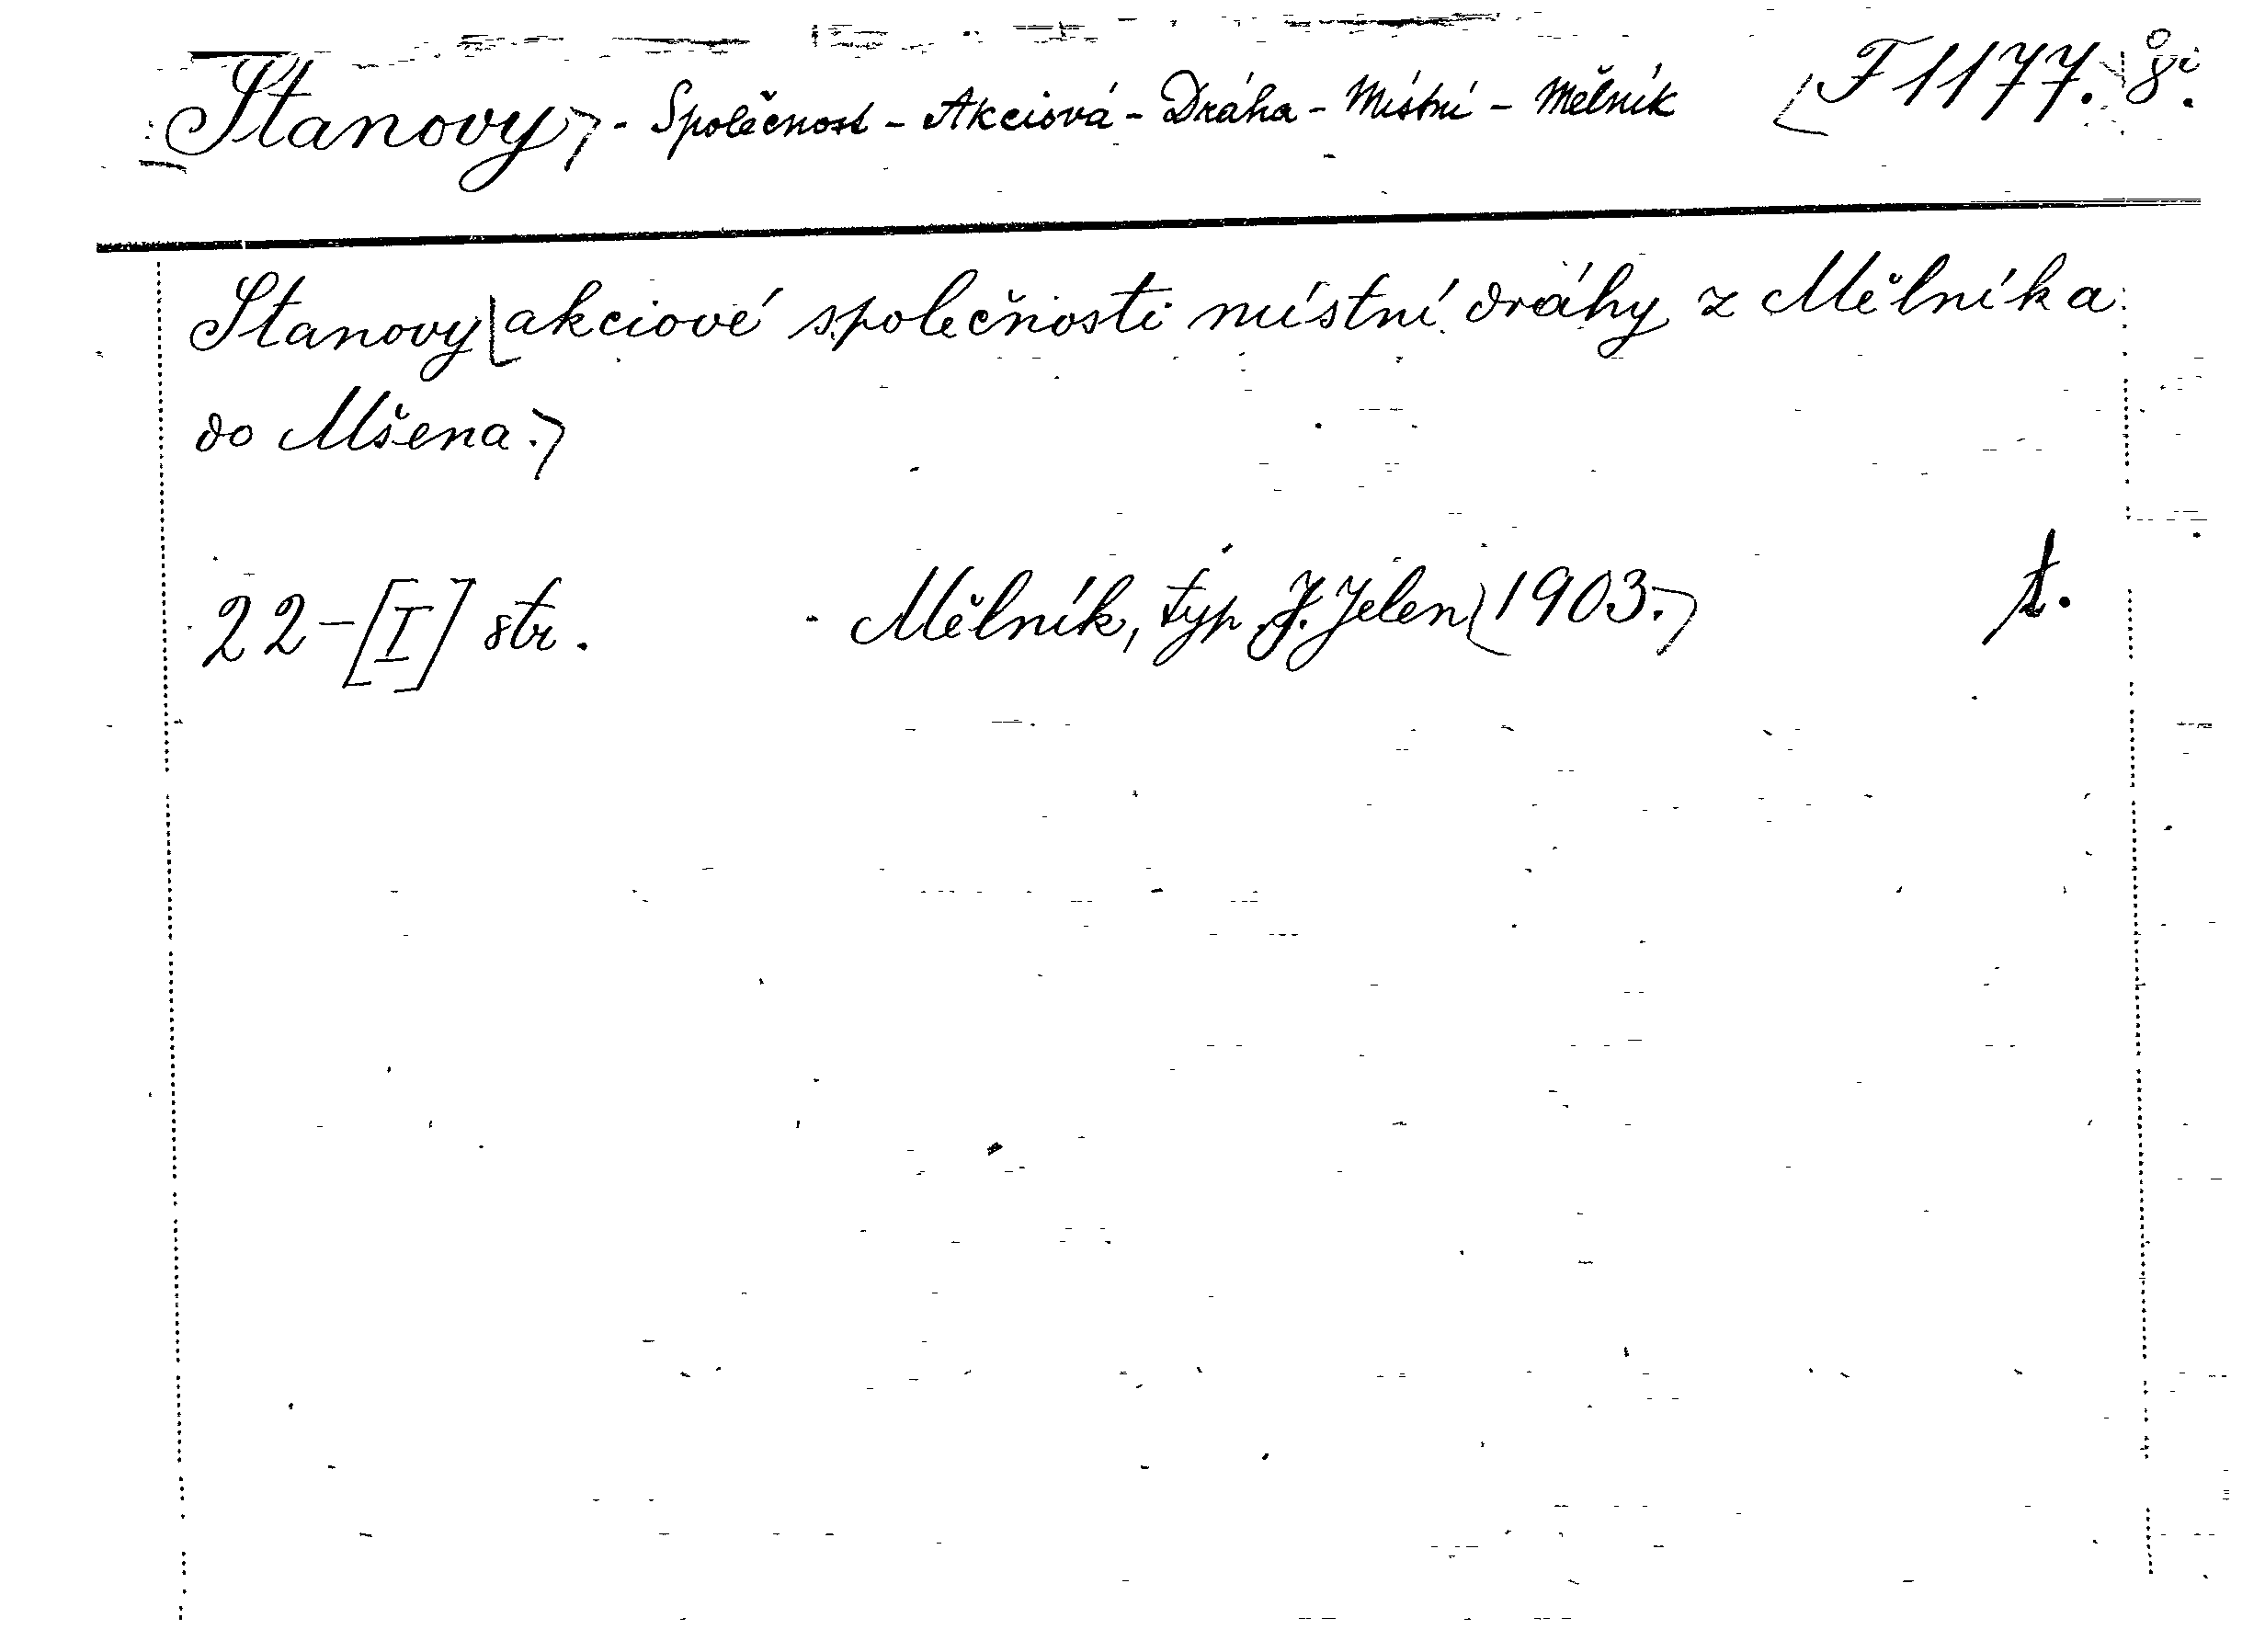 Stanovy - Společnost - Akciová - Dráha - Místní - Mělník F 1177.
Stanovy akciové společnosti místní dráhy z Mělníka
do Mšena.
22-[I] str. Mělník, typ. J. Jelen 1903. t.